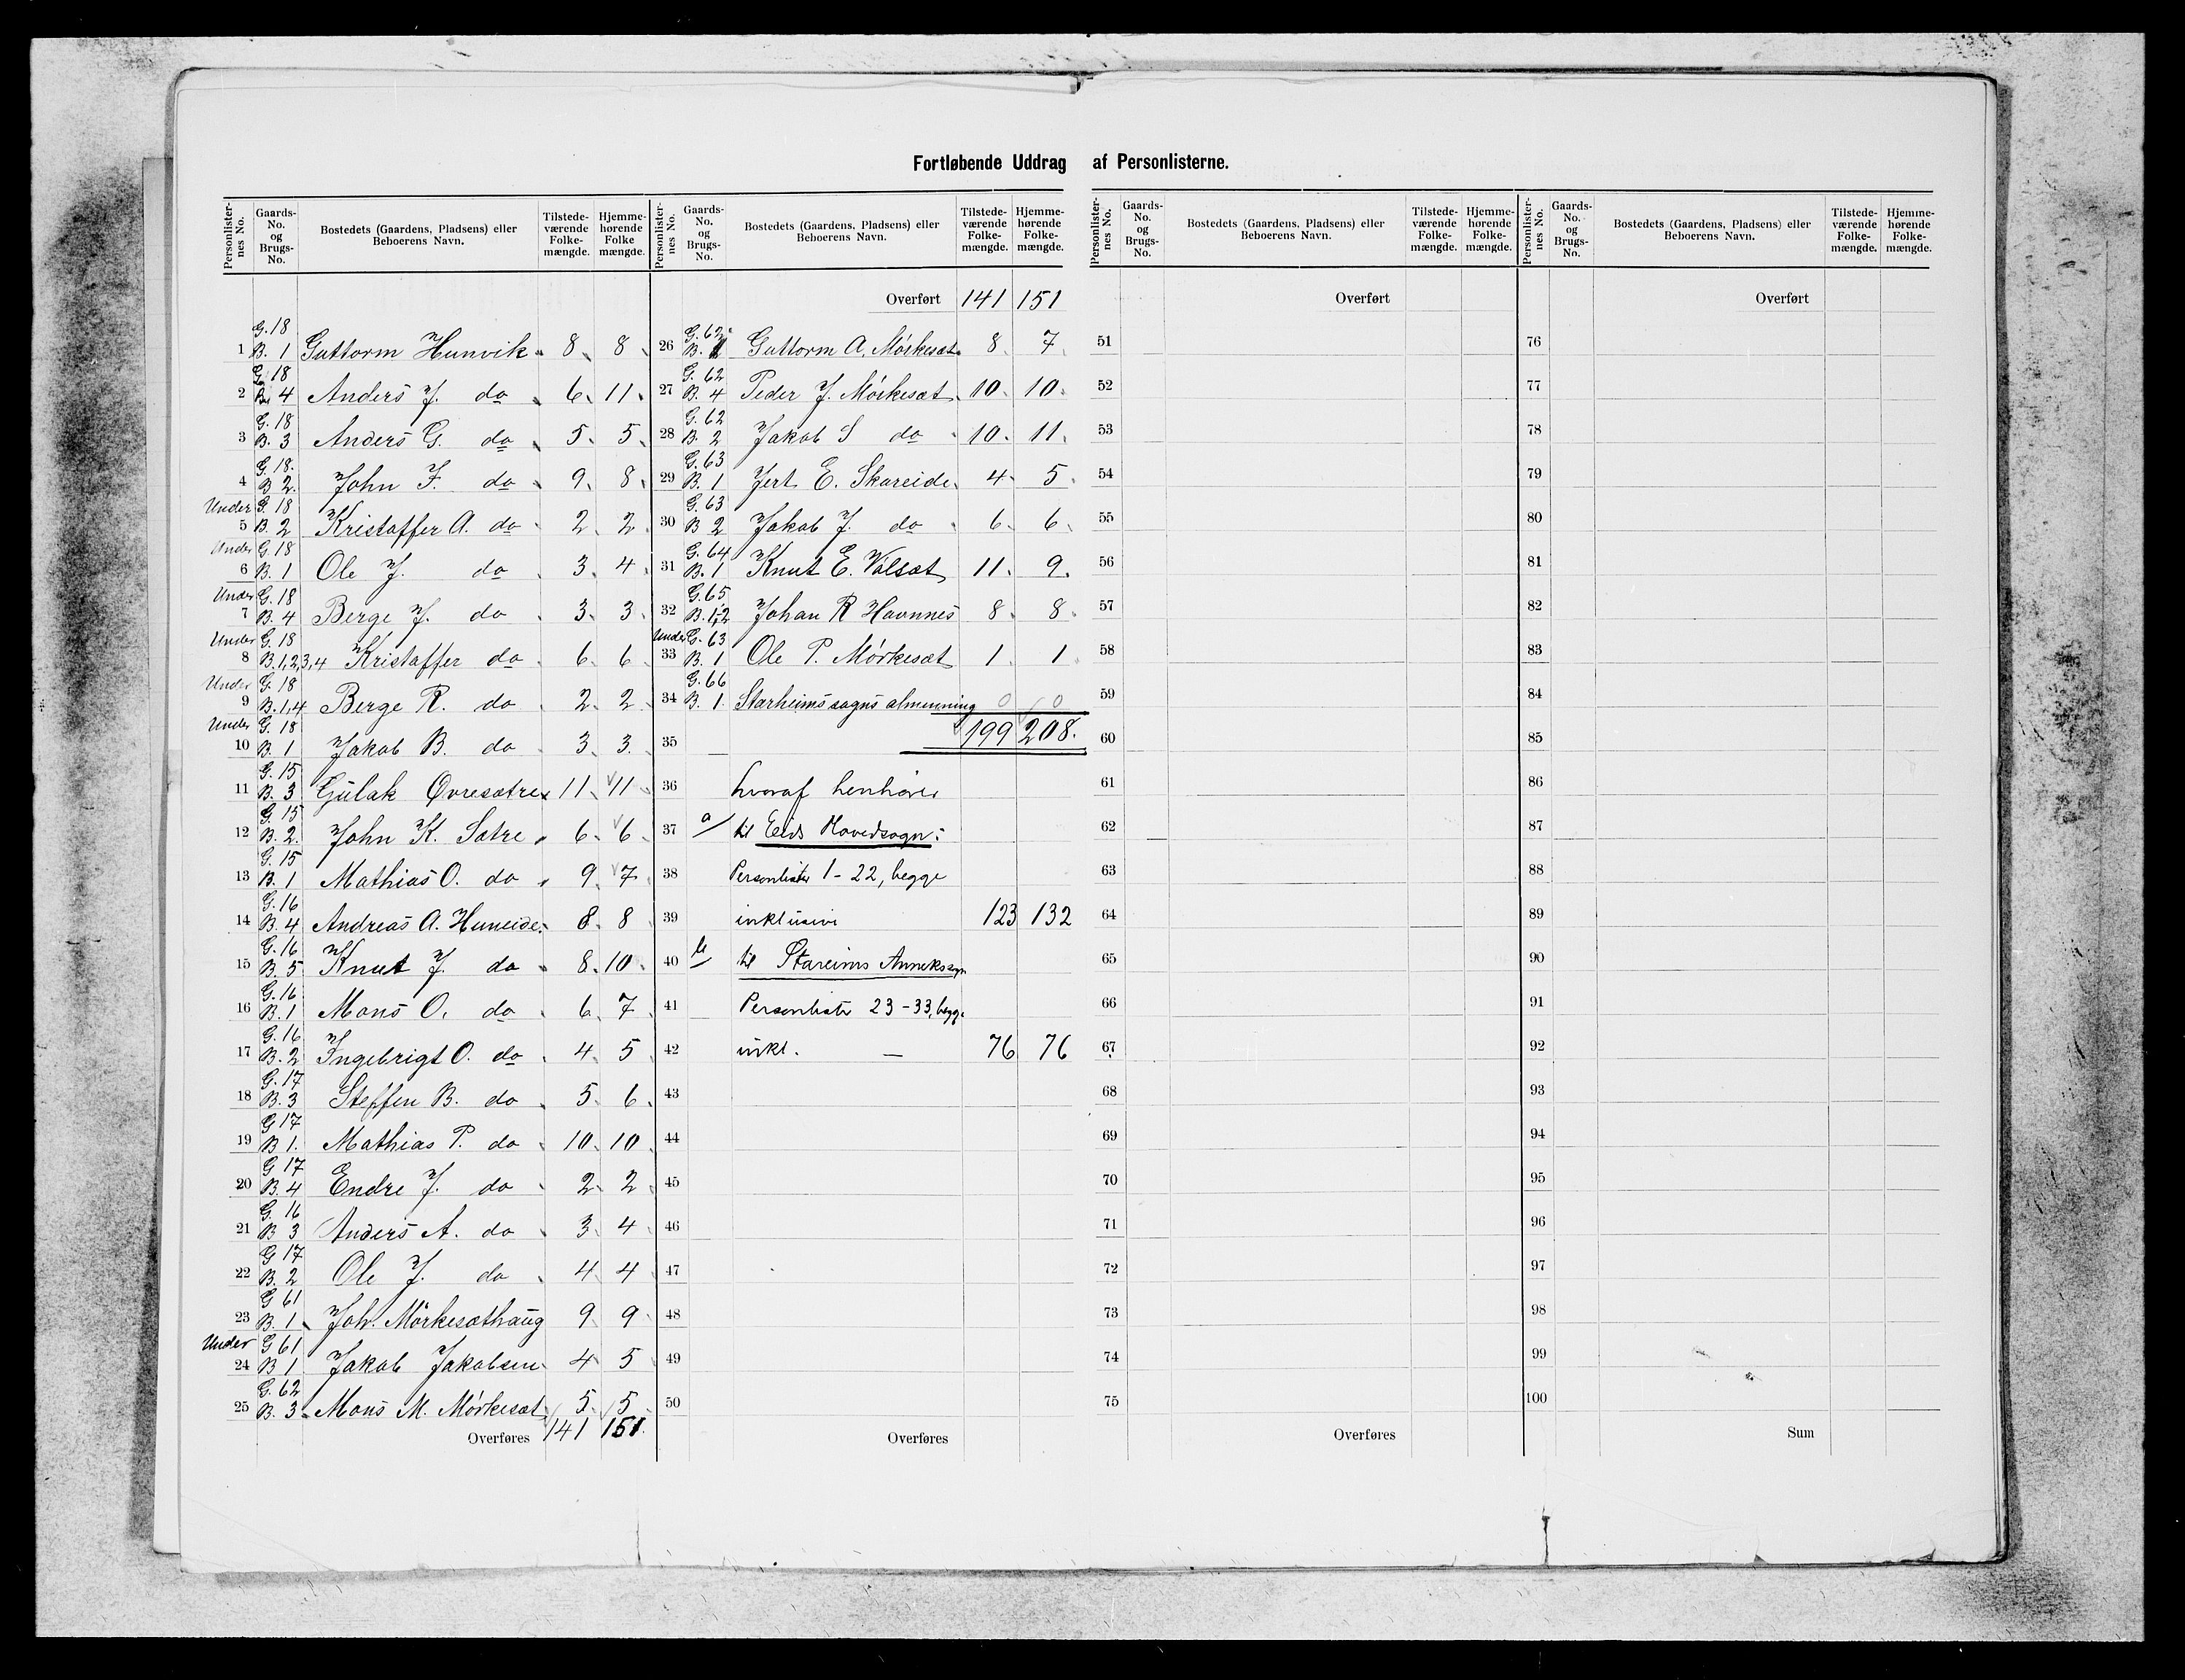 Fortløbende Uddrag af Personlisterne.
Personlisternes No. Gaards-No. og Brugs-No. Bostedets (Gaardens, Pladsens) eller Beboerens Navn. Tilstedeværende Folkemængde. Hjemmehørende Folkemængde.
1 G. 18 B. 1 Guttorm Hunvik 8 8
2 G. 18 B. 4 Anders J. do 6 11
3 G. 18 B. 3 Anders G. do 5 5
4 G. 18. B 2. John J. do 9 8
Under 5 G. 18 B 2 Kristaffer A. do 2 2
Under 6 G. 18 B. 1 Ole J. do 3 4
Under 7 G. 18 B. 4 Berge J. do 3 3
Under 8 G. 18 B. 1,2,3,4 Kristaffer do 6 6
Under 9 G. 18 B. 1,4 Berge R. do 2 2
Under 10 G. 18 B. 1 Jakob B. do 3 3.
11 G. 15 B. 3 Gulak Øvresætre 11 11
12 G. 15 B. 2. John K. Sætre 6 6
13 G. 15 B. 1 Mathias O. do 9 7
14 G. 16 B. 4 Andreas A. Huneide 8 8
15 G. 16 B. 5 Knut J. do 8 10
16 G. 16 B. 1 Mons O. do 6 7
17 G. 16 B. 2 Ingebrigt O. do 4 5
18 G. 17 B. 3 Steffen B. do 5 6
19 G 17 B 1. Mathias P. do 10 10
20 G 17 B. 4 Endre J. do 2 2
21 G. 16 B 3 Anders A. do 3 4
22 G 17 B. 2 Ole J. do 4 4
23 G 61 B. 1 Joh. Mörkesæthaug 9 9
Under 24 G 61 B 1 Jakob Jakobsen 4 5
25 G. 62 B. 3 Mons M. Mörkesæt 5 5
Overføres 141 151.
Personlisternes No. Gaards-No. og Brugs-No. Bostedets (Gaardens, Pladsens) eller Beboerens Navn. Tilstedeværende Folkemængde. Hjemmehørende Folkemængde.
Overført 141 151
26 G. 62 B. 1 Guttorm A. Mörkesæt 8 7
27 G. 62 B. 4 Peder J. Mörkesæt 10 10
28 G. 62 B. 2 Jakob S do 10 11
29 G. 63 B. 1 Jert E. Skareide 4 5
30 G. 63 B 2 Jakob J. do 6 6
31 G. 64 B. 1 Knut E. Valsæt 11 9
32 G. 65 B. 1,2 Johan R Havnnes 8 8
Under 33 G. 63 B. 1 Ole P. Mörkesæt 1 1
34 G. 66 B. 1. Starheimssogns almenning 0 0
35 199 208.
36 hvoraf henhører
37 a/ til Eids Hovedsogn:
38 Personlister 1 - 22, begge
39 inklusive 123 132
40 b/ til Stareims Annekssogn
41 Personlister 23 - 33, begge
42 inkl. — 76 76
43
44
45
46
47
48
49
50
Overføres
Personlisternes No. Gaards-No. og Brugs-No. Bostedets (Gaardens, Pladsens) eller Beboerens Navn. Tilstedeværende Folkemængde. Hjemmehørende Folkemængde.
Overført
51
52
53
54
55
56
57
58
59
60
61
62
63
64
65
66
67
68
69
70
71
72
73
74
75
Overføres
Personlisternes No. Gaards-No. og Brugs-No. Bostedets (Gaardens, Pladsens) eller Beboerens Navn. Tilstedeværende Folkemængde. Hjemmehørende Folkemængde.
Overført
76
77
78
79
80
81
82
83
84
85
86
87
88
89
90
91
92
93
94
95
96
97
98
99
100
Sum